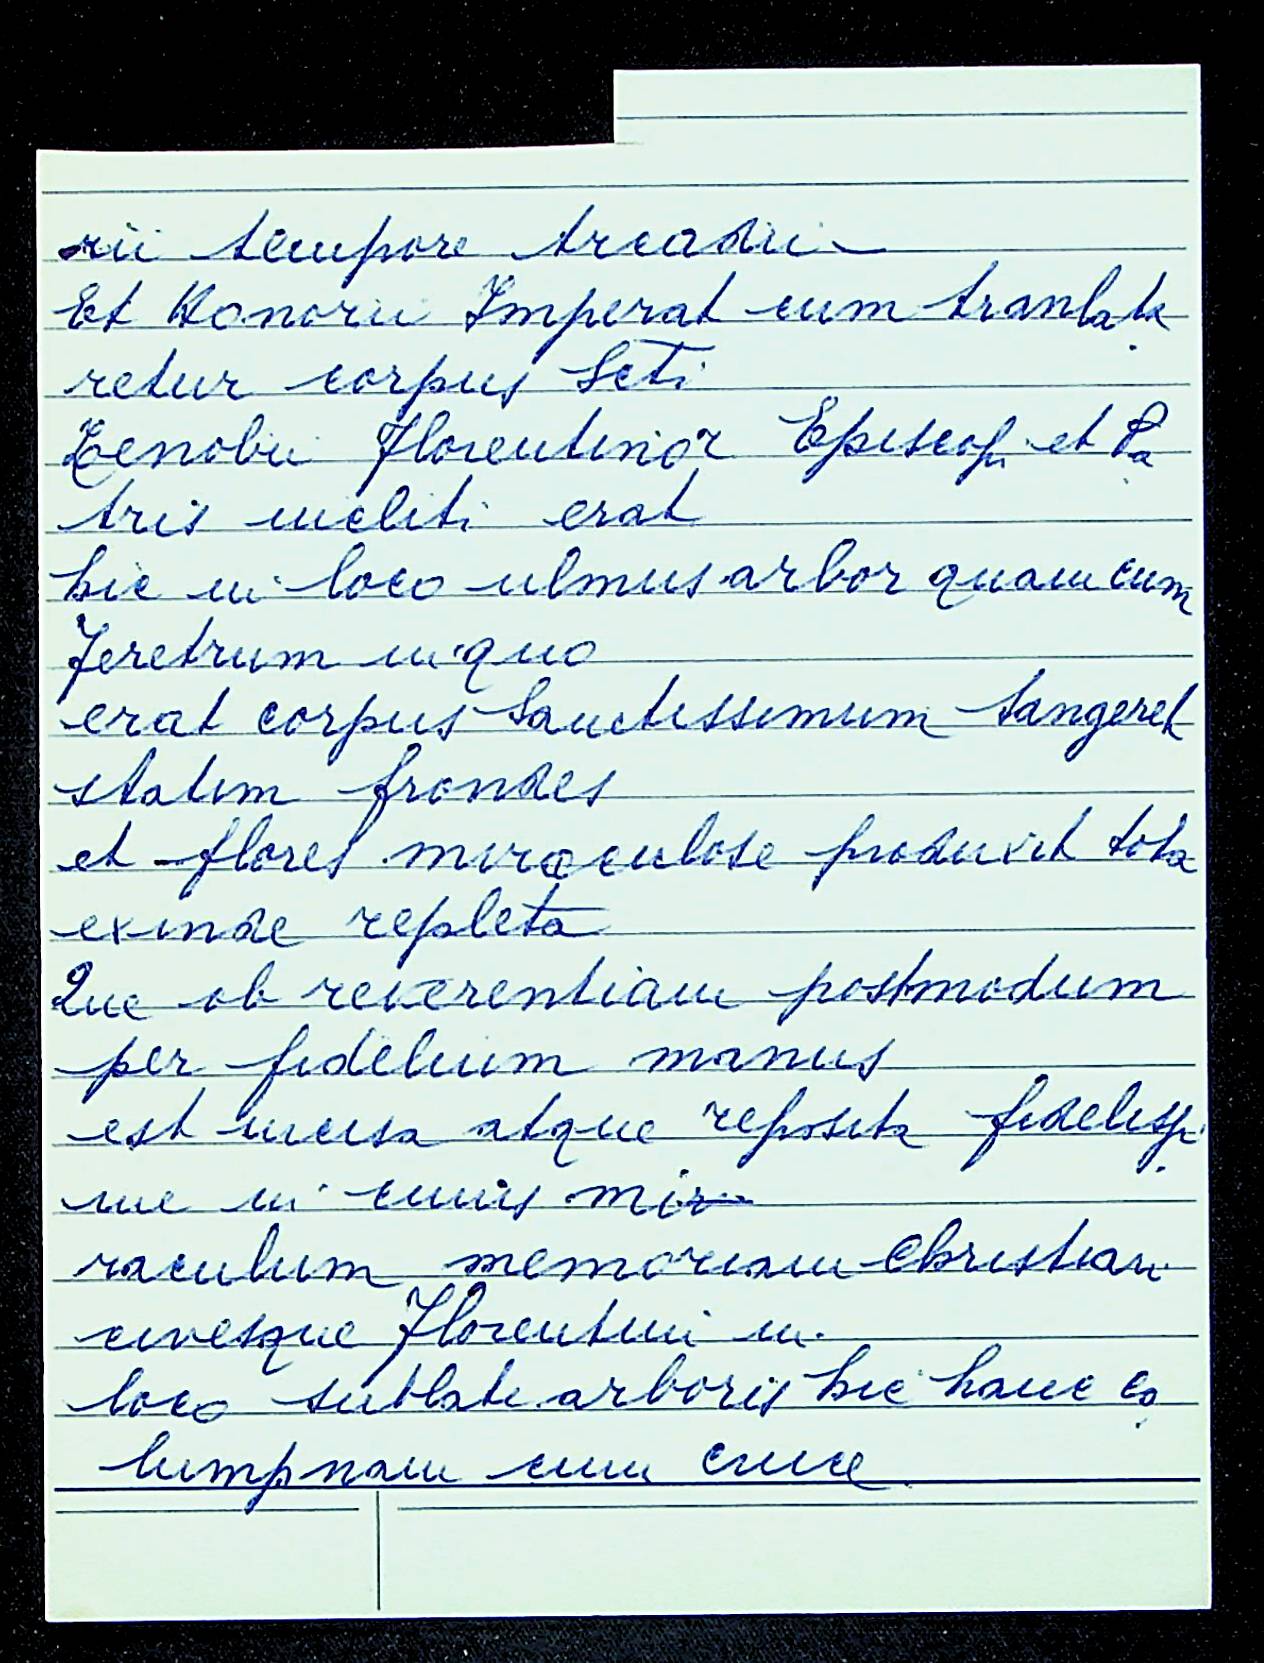 rii tempore Arcadii
Et Honorii Imperat cum tranlate
retur corpus Scti
Zenobii Florentinor Episcopi et Pa
tris incliti erat
hic in loco ulmus arbor quam cum
Feretrum in quo
erat corpus Sanctissimum tangeret
statim frondes
et flores miraculose produxit tota
exinde repleta
Que ob reverentiam postmodum
per fidelium manus
est incisa atque reposita fidelisp
me in cuius mir
raculum memoriam Christiani
civesque Florentini in
loco sublate arboris hic hanc co
lumpnam cum cruce